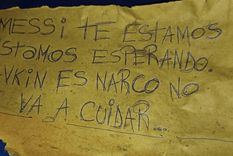 MESSI TE ESTAMOS
ESTAMOS ESPERANDO.
VKIN ES NARCO NO
VA A CUIDAR...